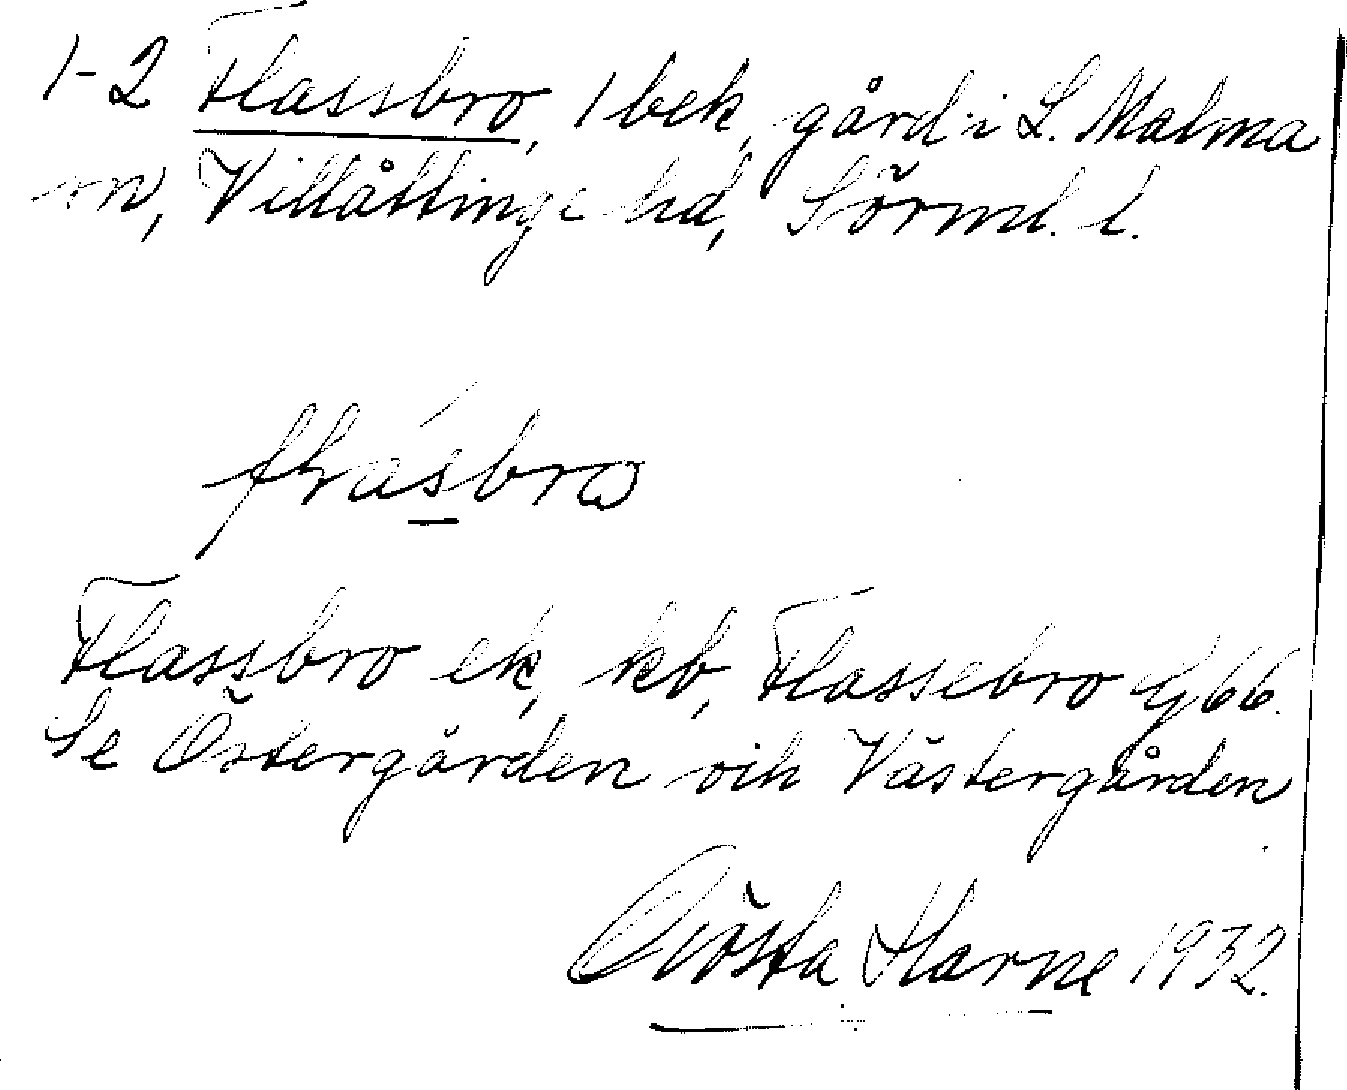 1-2 Flassbro, 1 bek, gård i L. Malma
sn, Villåttinge hd, Sörml. l.
flásbro
Flassbro ek, kb, Flassebro Gf 66.
Se Östergården och Västergården
Gösta Harne 1932.